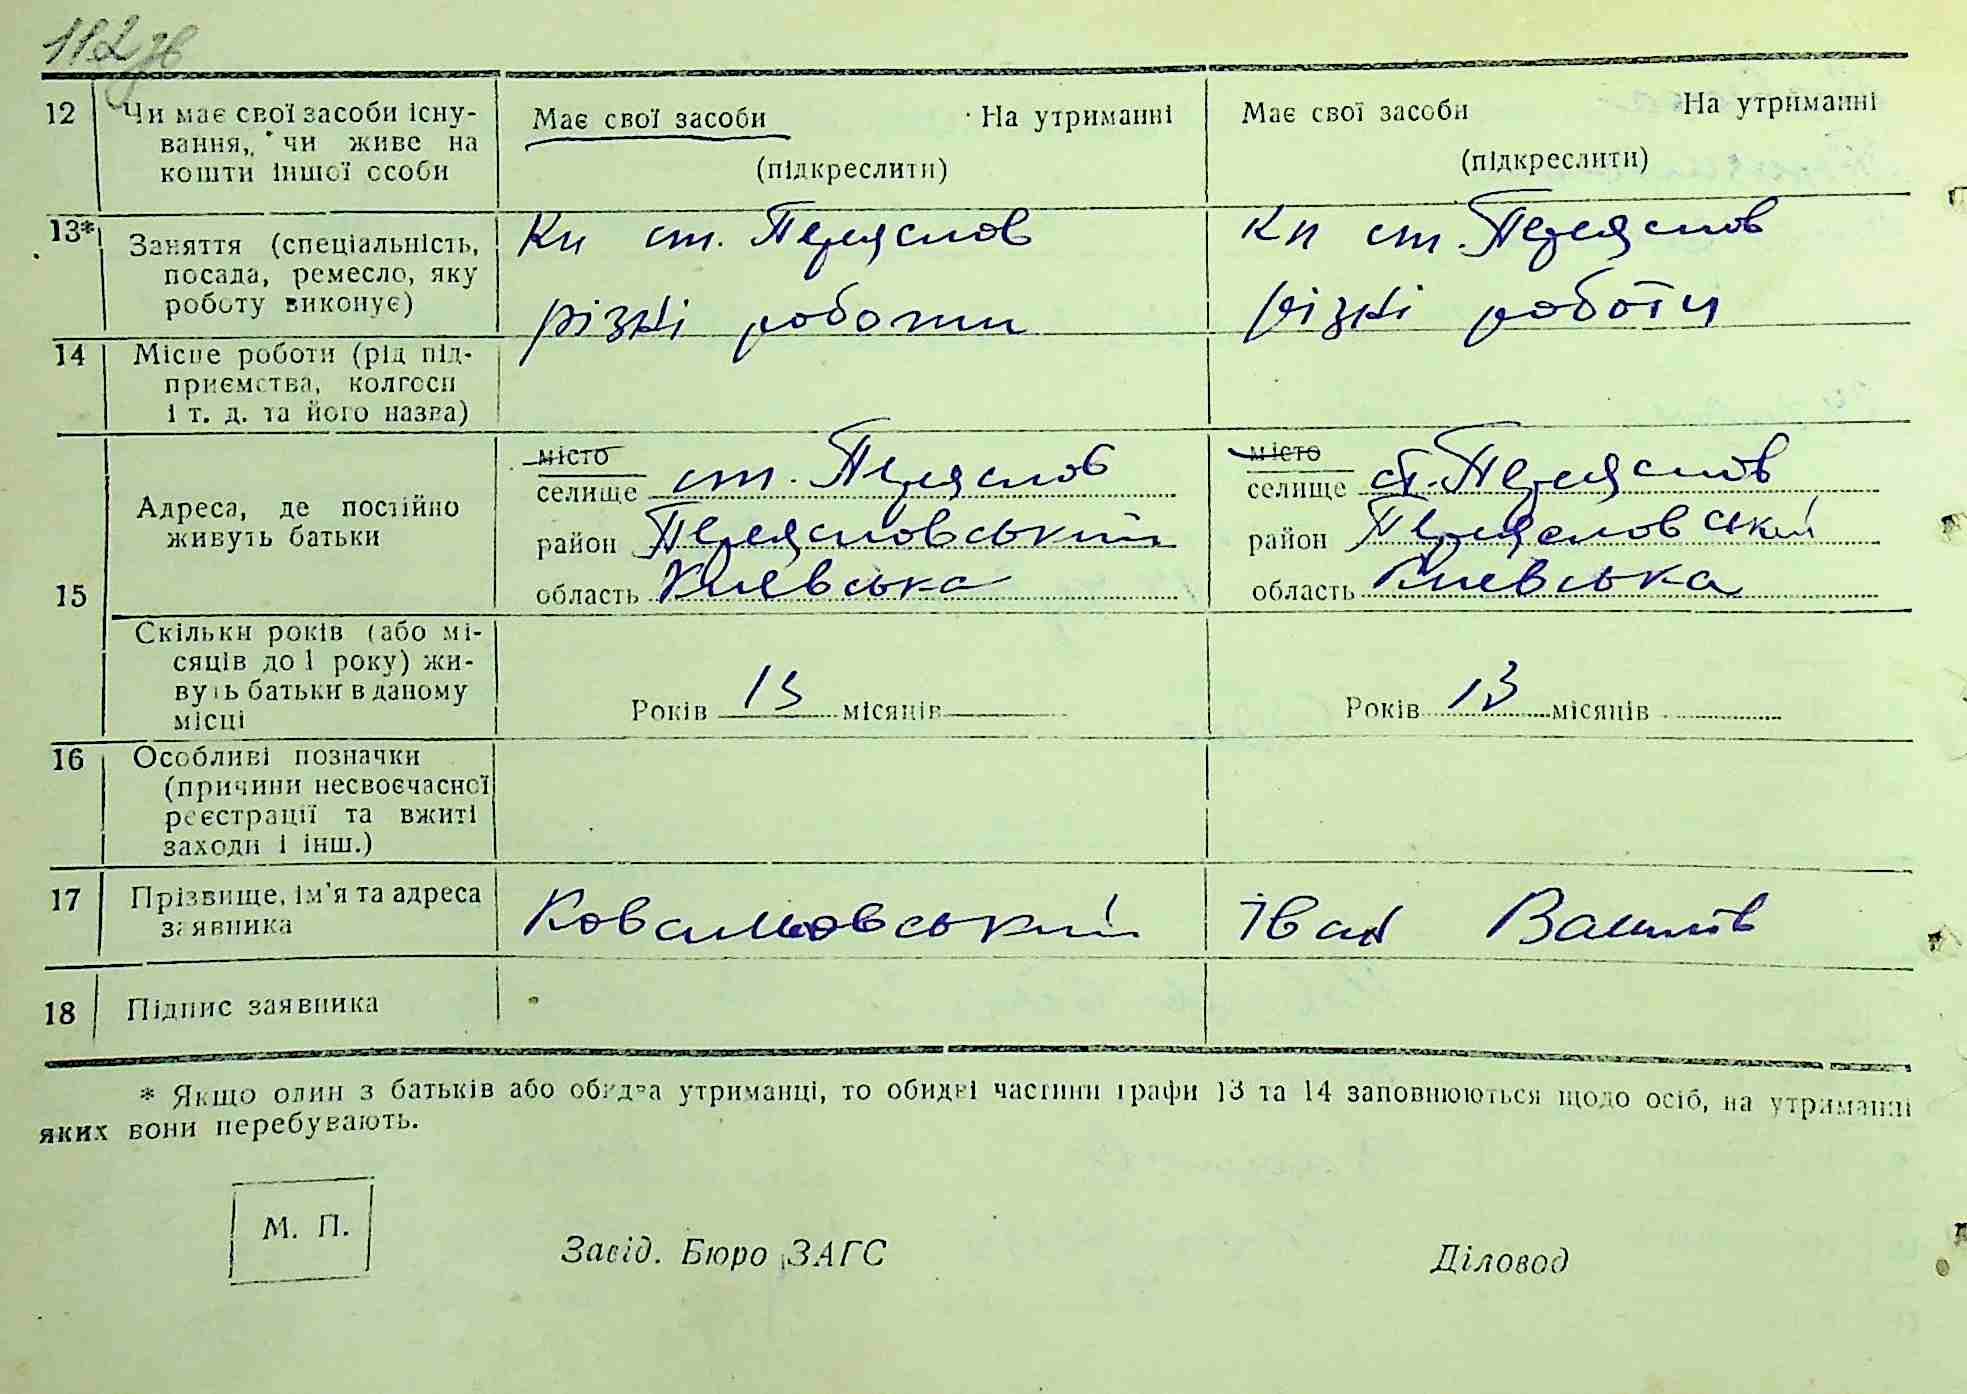 112 зв
12 Чи має свої засоби існу-
вання, чи живе на
кошти іншої особи
Має свої засоби На утриманні
(підкреслити)
Має свої засоби На утриманні
(підкреслити)
13* Заняття (спеціальність,
посада, ремесло, яку
роботу виконує)
Кп ст. Переяслов
різні роботи
Кп ст. Переяслов
різні роботи
14 Місце роботи (рід під-
приємства, колгосп
і т. д. та його назва)
15 Адреса, де постійно
живуть батьки
місто
селище ст. Переяслов
район Переясловський
область Київська
місто
селище ст. Переяслов
район Переясловський
область Київська
Скільки років (або мі-
сяців до 1 року) жи-
вуть батьки в даному
місці
Років 13 місяців
Років 13 місяців
16 Особливі позначки
(причини несвоєчасної
реєстрації та вжиті
заходи і інш.)
17 Прізвище, ім'я та адреса
заявника
Ковальовський Іван
18 Підпис заявника
* Якщо один з батьків або обидва утриманці, то обидві частини графи 13 та 14 заповнюються щодо осіб, на утриманні
яких вони перебувають.
М. П.
Завід. Бюро ЗАГС Діловод